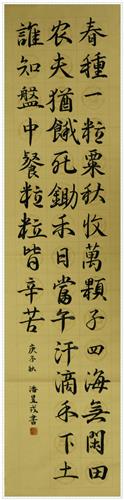 春種一粒粟秋收萬顆子四海無閑田
農夫猶餓死鋤禾日當午汗滴禾下土
誰知盤中餐粒粒皆辛苦
庚子秋
潘昱成書